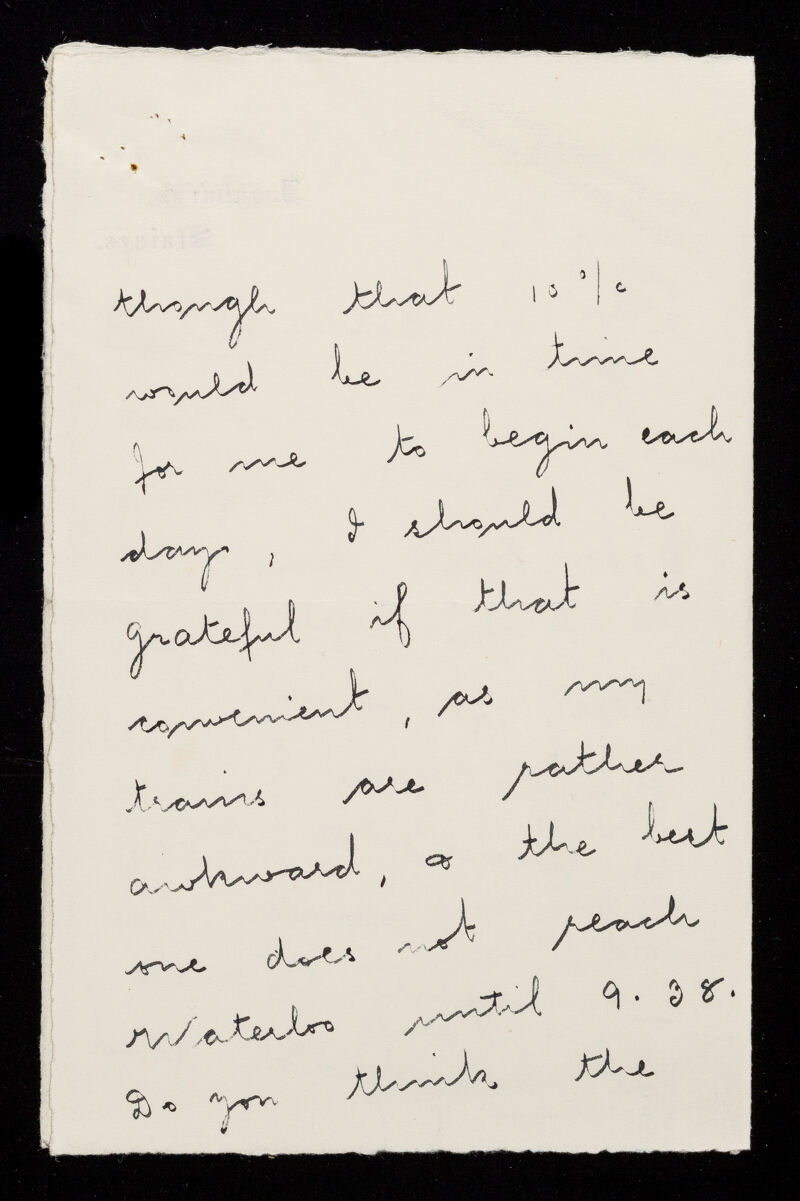 though that 10 o/c
would be in time
for me to begin each
day, I should be
grateful if that is
convenient, as my
trains are rather
awkward, & the best
one does not reach
Waterloo until 9.38.
Do you think the